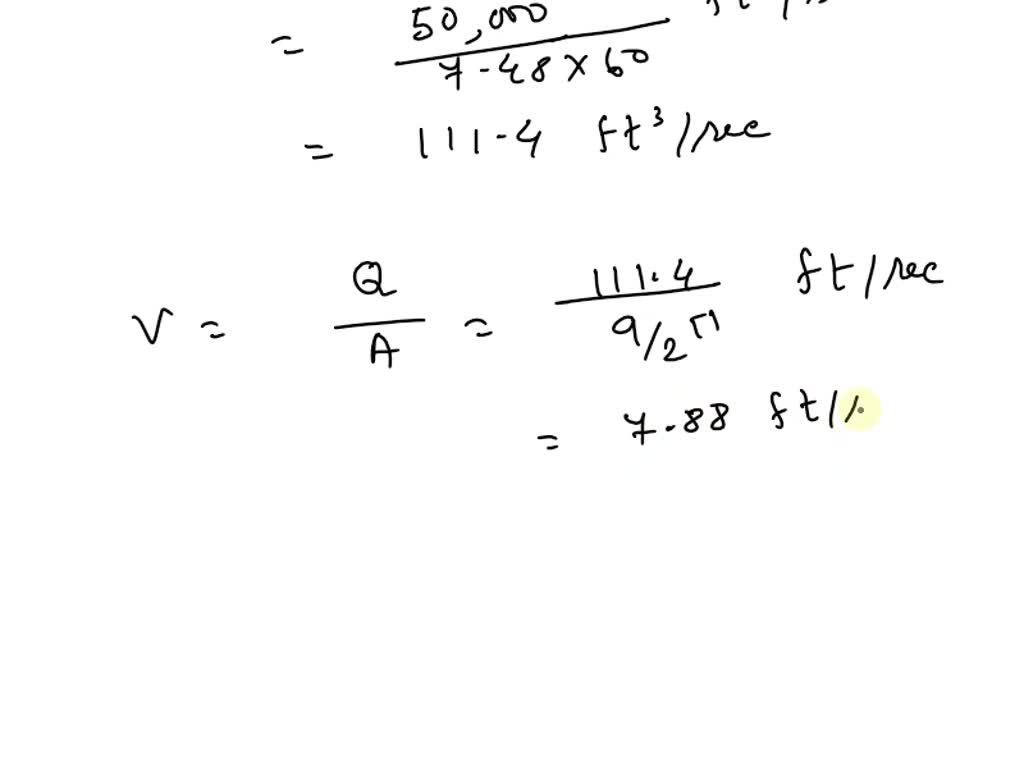 = 50,000 / 7.48 × 60
= 111.4 ft³/sec
V = Q / A = 111.4 / 9/2 π ft/sec
= 7.88 ft/